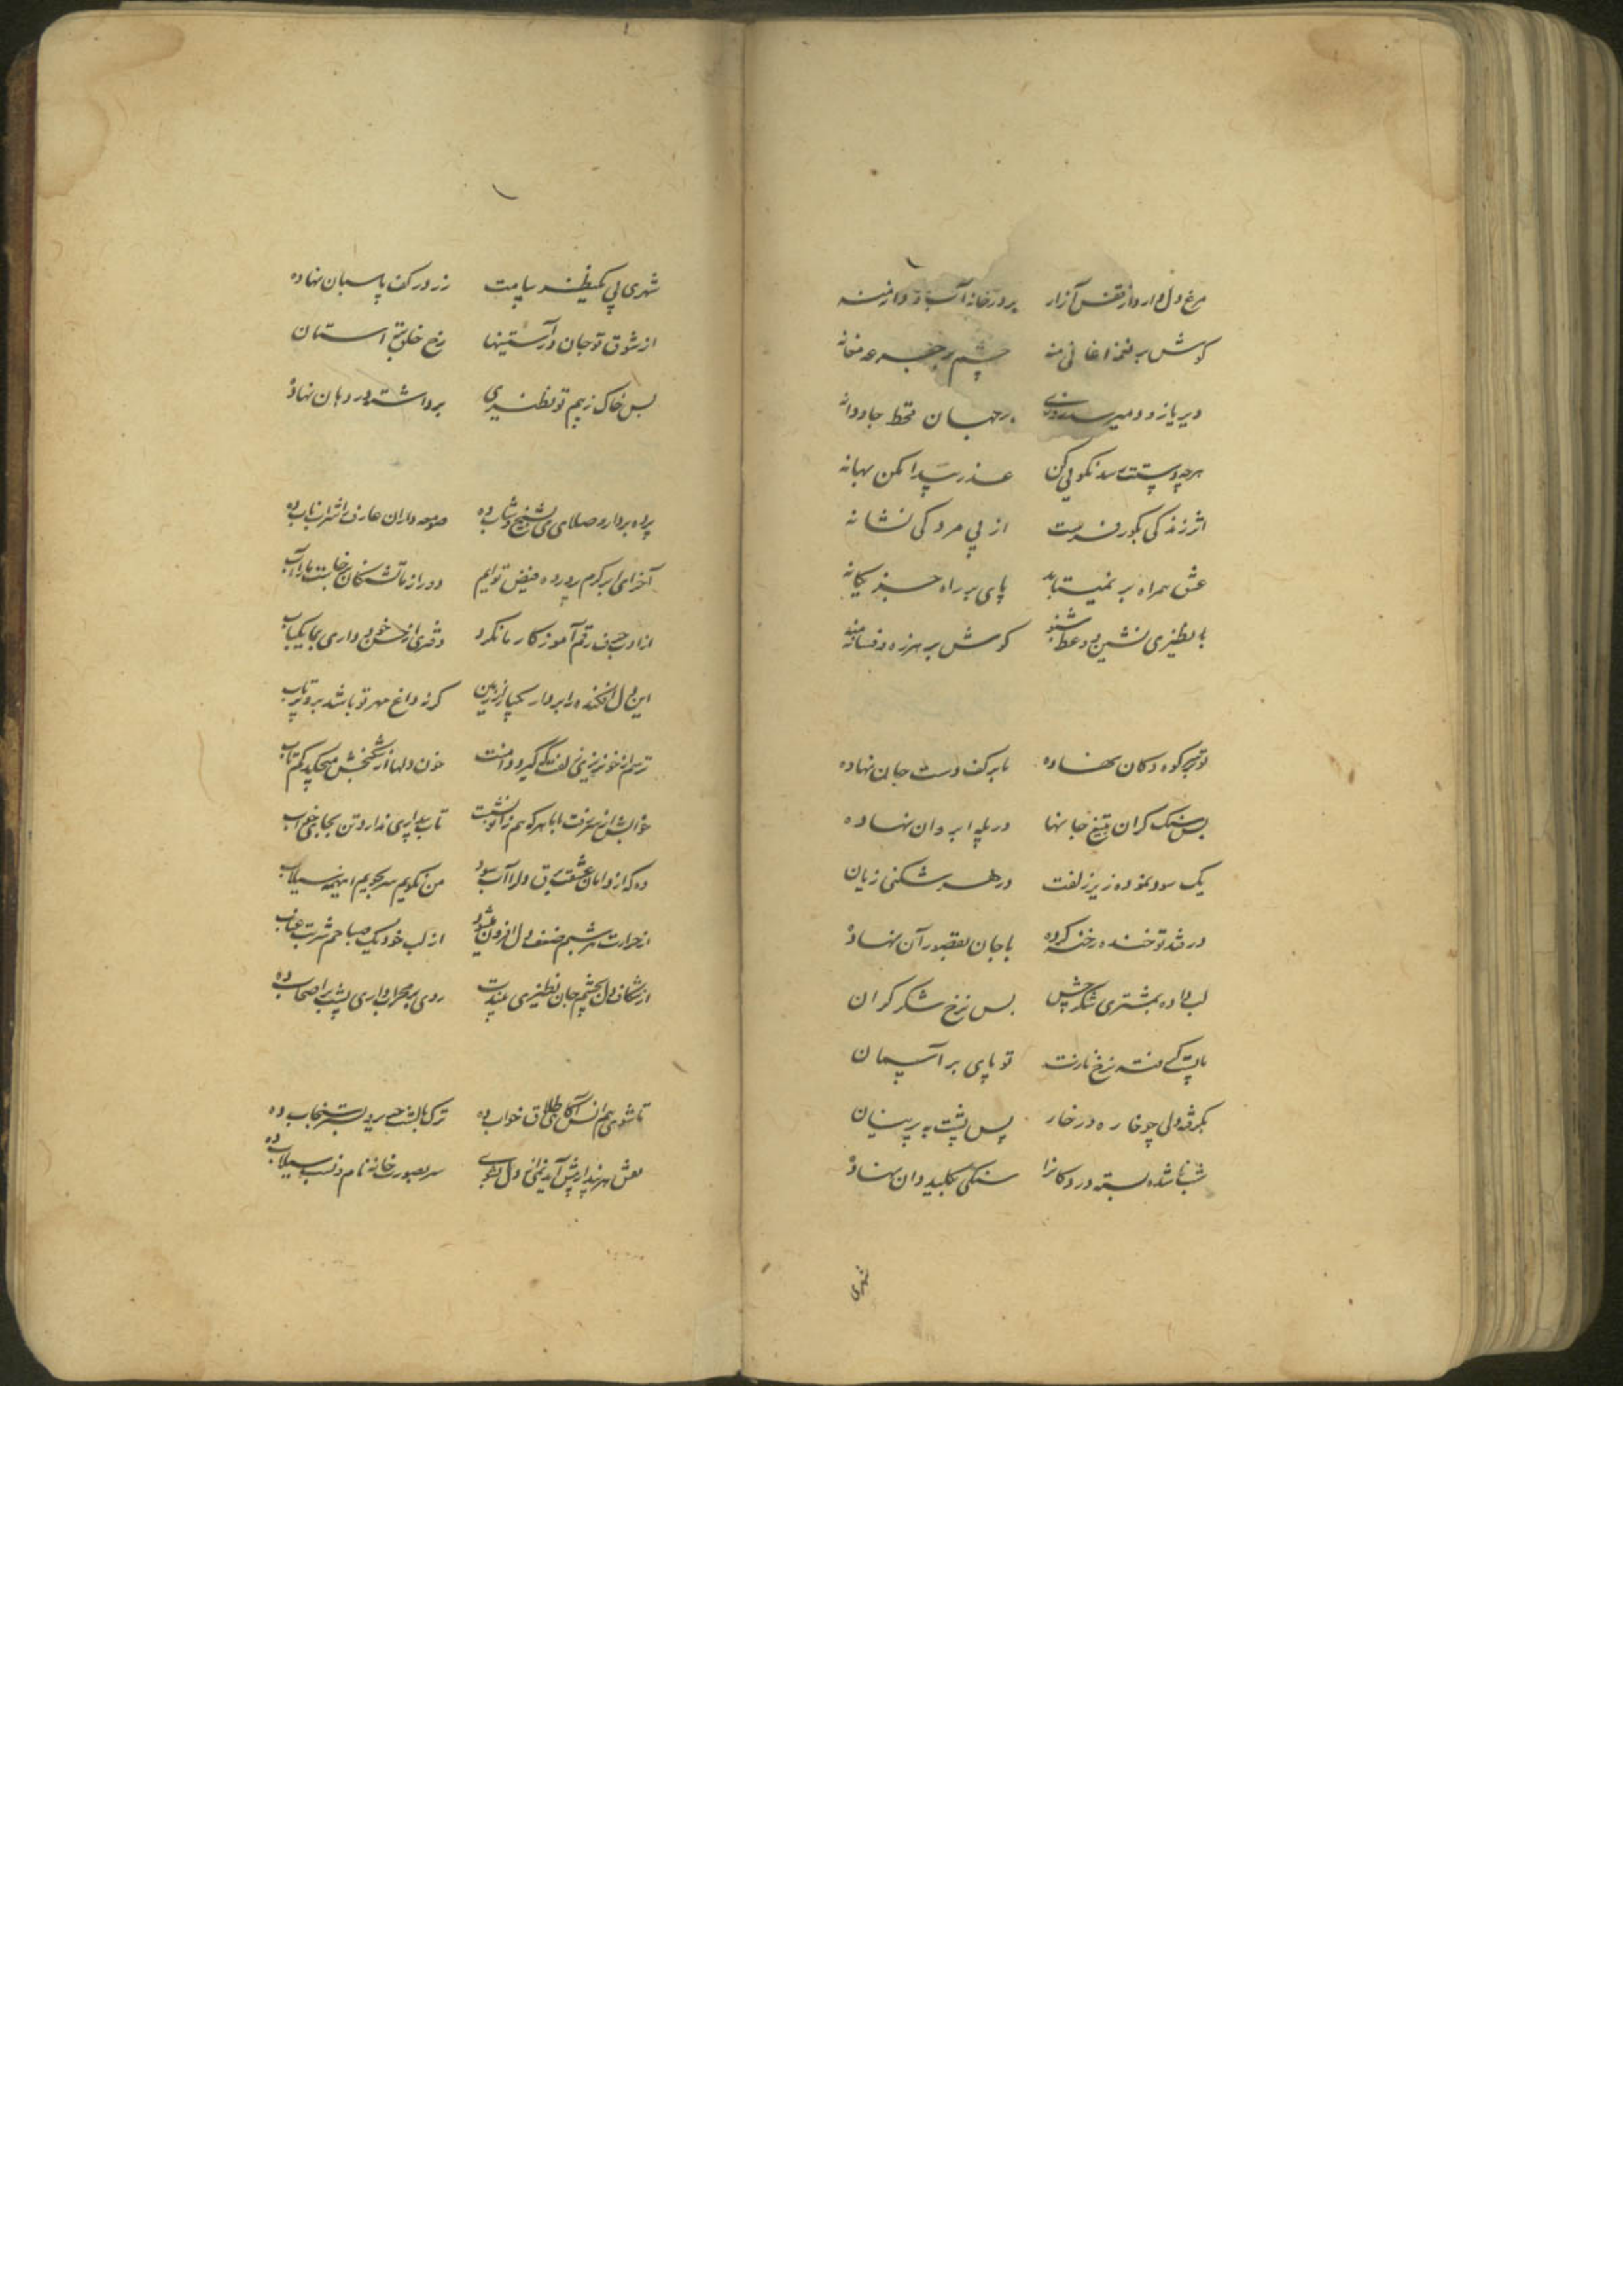 مرغ دل دارد از قفس آزار بر در خانه آب و دانه منه
گوش بر نغمه اغانی منه چشم بر جرعه مغانه
دیر یا زود میرسد روزی بر جهان قحط جاودانه
هرچه دستت رسد نکویی کن عذر پیدا مکن بهانه
اثر زندگی بگور فرست از پی مردگی نشانه
عشق همراه بر نمیتابد پای بر راه جز یگانه
با نظیری نشین و وعظ شنو گوش بر هرزه و فسانه منه
تو بر سر کوه دکان نهاده ما بر کف دست جان نهاده
بس سنگ گران بتیغ جانها در پله ابروان نهاده
یک سود نموده زیر زلفت در هر شکنی زیان
در قند تو خنده رخنه کرده با جان بقصور آن نهاده
لب داده بمشتری شکر چش بس نرخ شکر گران
ما پست کمینه نرخ نازت تو پای بر آسمان
بگرفته دلی چو خاره در خار پس پشت به پرنیان
شبها شده بسته در دکانرا سنگی بکلیددان نهاده
شهری
شهری پی یکنظر بپایت زر در کف پاسبان نهاده
از شوق تو جان در آستینها رخ خلق بر آستان
بس خاک ز بیم تو نظیری برداشته در دهان نهاده
پرده بردار و صلای می بشیخ و شاب ده صومعه داران عارف را شراب ناب ده
آخر ای ابر کرم پرورده فیض توایم دور از ما تشنگان برخاستت ما را آب
از ادب حرف رقم آموز کار ما نکرد دفتری از حسن و خوبی داری بما یکباب
این دل افکنده را بردار کیبار از زمین گر نه داغ مهر تو باشد برو پرتاب
ترسم از خونریزی زلفت کسی گیرد دامنت خون دلها از شکنجش میچکد کم تاب
خوابش از سر رفت با ما هر که همزانو نشست تاب بیداری ندارد تن بجای خواب
ده که از دامان عشقت برق دلرا آب سود من نگویم سر بجویم اینهمه سیلاب
از حرارت شربتم ضعف دل افزون میشود از لب خود یک صباحم شربت عناب
از شکاف دل بچشم جان نظیری عید تست روی بر محراب داری پشت بر اصحاب ده
تا شوی همدم انس آگاهی طلاق خواب ده ترک بالشت حریر و بستر سنجاب ده
نقش هر پندار پیش آید نمانی دل بشوی سر بصورتخانه نام و نسب سیلاب ده